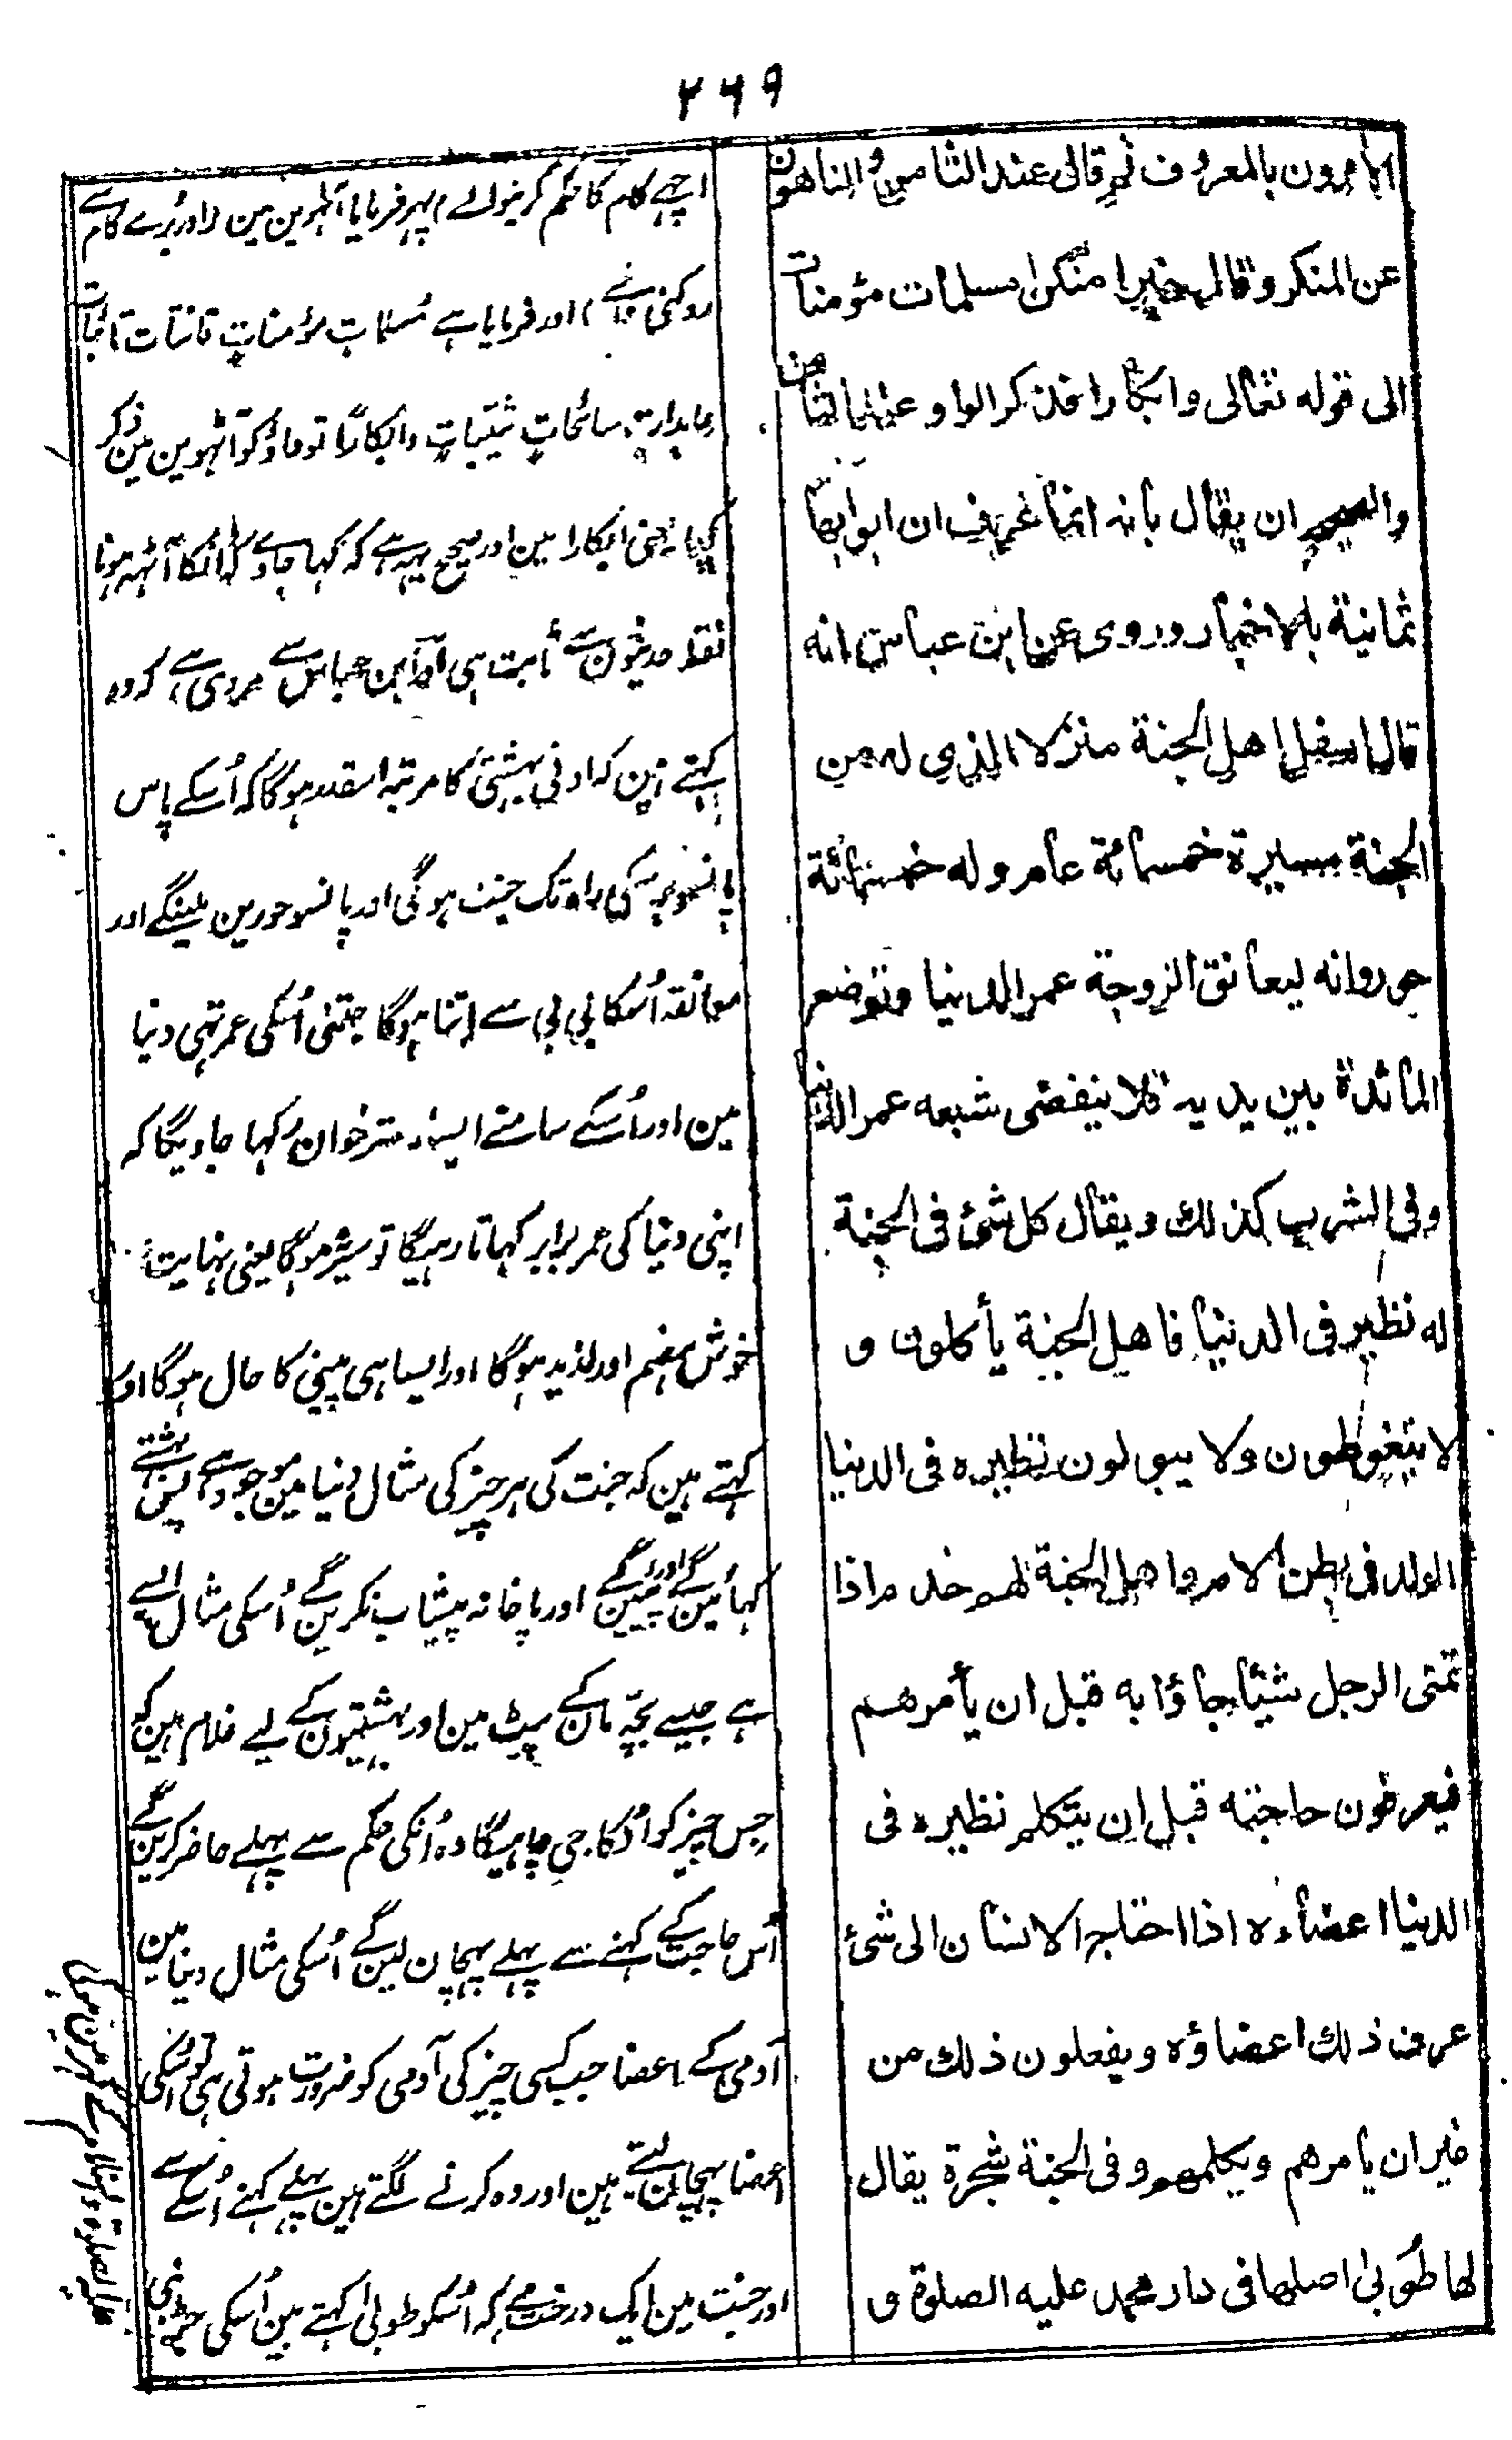 ۲۶۹
الآمرون بالمعروف ثم قال عند الثامن والناهون
عن المنكر وقال خيرا منكن مسلمات مؤمنات
الى قوله تعالى وابكارا فذكر الواو عند الثامن
والصحيح ان يقال بانه انما عرف ان ابوابها
ثمانية بالاخبار وروى عن ابن عباس انه
قال اسفل اهل الجنة منزلا الذي له من
الجنة مسيرة خمسمائة عام وله خمسمائة
حور وانه ليعانق الزوجة عمر الدنيا وتوضع
المائدة بين يديه فلا ينقضى شبعه عمر الدنيا
وفى الشرب كذلك ويقال كل شئ فى الجنة
له نظير فى الدنيا فاهل الجنة يأكلون و
لا يتغوطون ولا يبولون نظيره فى الدنيا
الولد فى بطن الام واهل الجنة لهم خدم اذا
تمنى الرجل شيئا جاؤا به قبل ان يأمرهم
فيعرفون حاجته قبل ان يتكلم نظيره فى
الدنيا اعضاءه اذا احتاج الانسان الى شئ
عرف ذلك اعضاؤه ويفعلون ذلك من
غير ان يامرهم ويكلمهم وفى الجنة شجرة يقال
لها طوبى اصلها فى دار محمد عليه الصلوة و
اچھے کام کا حکم کرنیوالے پہر فرمایا آٹھوین مین اور بُرے کام سے
روکنی والے اور فرمایا ہے مسلمات مؤمنات قانتات تائبات
عابدات سائحات ثیبات وابکارًا تو واؤ کو آٹہوین مین ذکر
کیا یعنی ابکارا مین اور صحیح یہہ ہے کہ کہا جاوے کہ انکا آٹھ ہونا
فقط حدیثون سے ثابت ہی اور ابن عباس سے مروی ہے کہ وہ
کہتے ہین کہ ادنی بہشتی کا مرتبہ اسقدر ہوگا کہ اُسکے پاس
پانسو برس کی راہ تک جنت ہوگی اور پانسو حورین ملینگے اور
معانقہ اُسکا بی بی سے اتنا ہوگا جتنی اُسکی عمر تہی دنیا
مین اور اُسکے سامنے ایسا دسترخوان رکہا جاویگا کہ
اپنی دنیا کی عمر برابر کہاتا رہیگا تو سیر نہوگا یعنی نہایت
خوش ہضم اور لذیذ ہوگا اور ایسا ہی پینی کا حال ہوگا اور
کہتے ہین کہ جنت کی ہر چیز کی مثال دنیا مین موجود ہے پس بہشتی
کہائین گے اور پیین گے اور پاخانہ پیشاب نکرین گے اُسکی مثال ایسے
ہے جیسے بچہ مان کے پیٹ مین اور بہشتیون کے لیے غلام ہین کہ
جس چیز کو اُنکا جی چاہیگا وہ اُنکی حکم سے پہلے حاضر کرین گے
اُس حاجت کے کہنے سے پہلے پہچان لین گے اُسکی مثال دنیا مین
آدمی کے اعضا جب کسی چیز کی آدمی کو ضرورت ہوتی ہی تو اُسکی
اعضا پہچان لیتے ہین اور وہ کرنے لگتے ہین پہلے کہنے اُسکے سے
اور جنت مین ایک درخت ہے کہ اُسکو طوبیٰ کہتے ہین اُسکی جڑ نبی
علیہ الصلوۃ والسلام کے گہر مین ہوگی